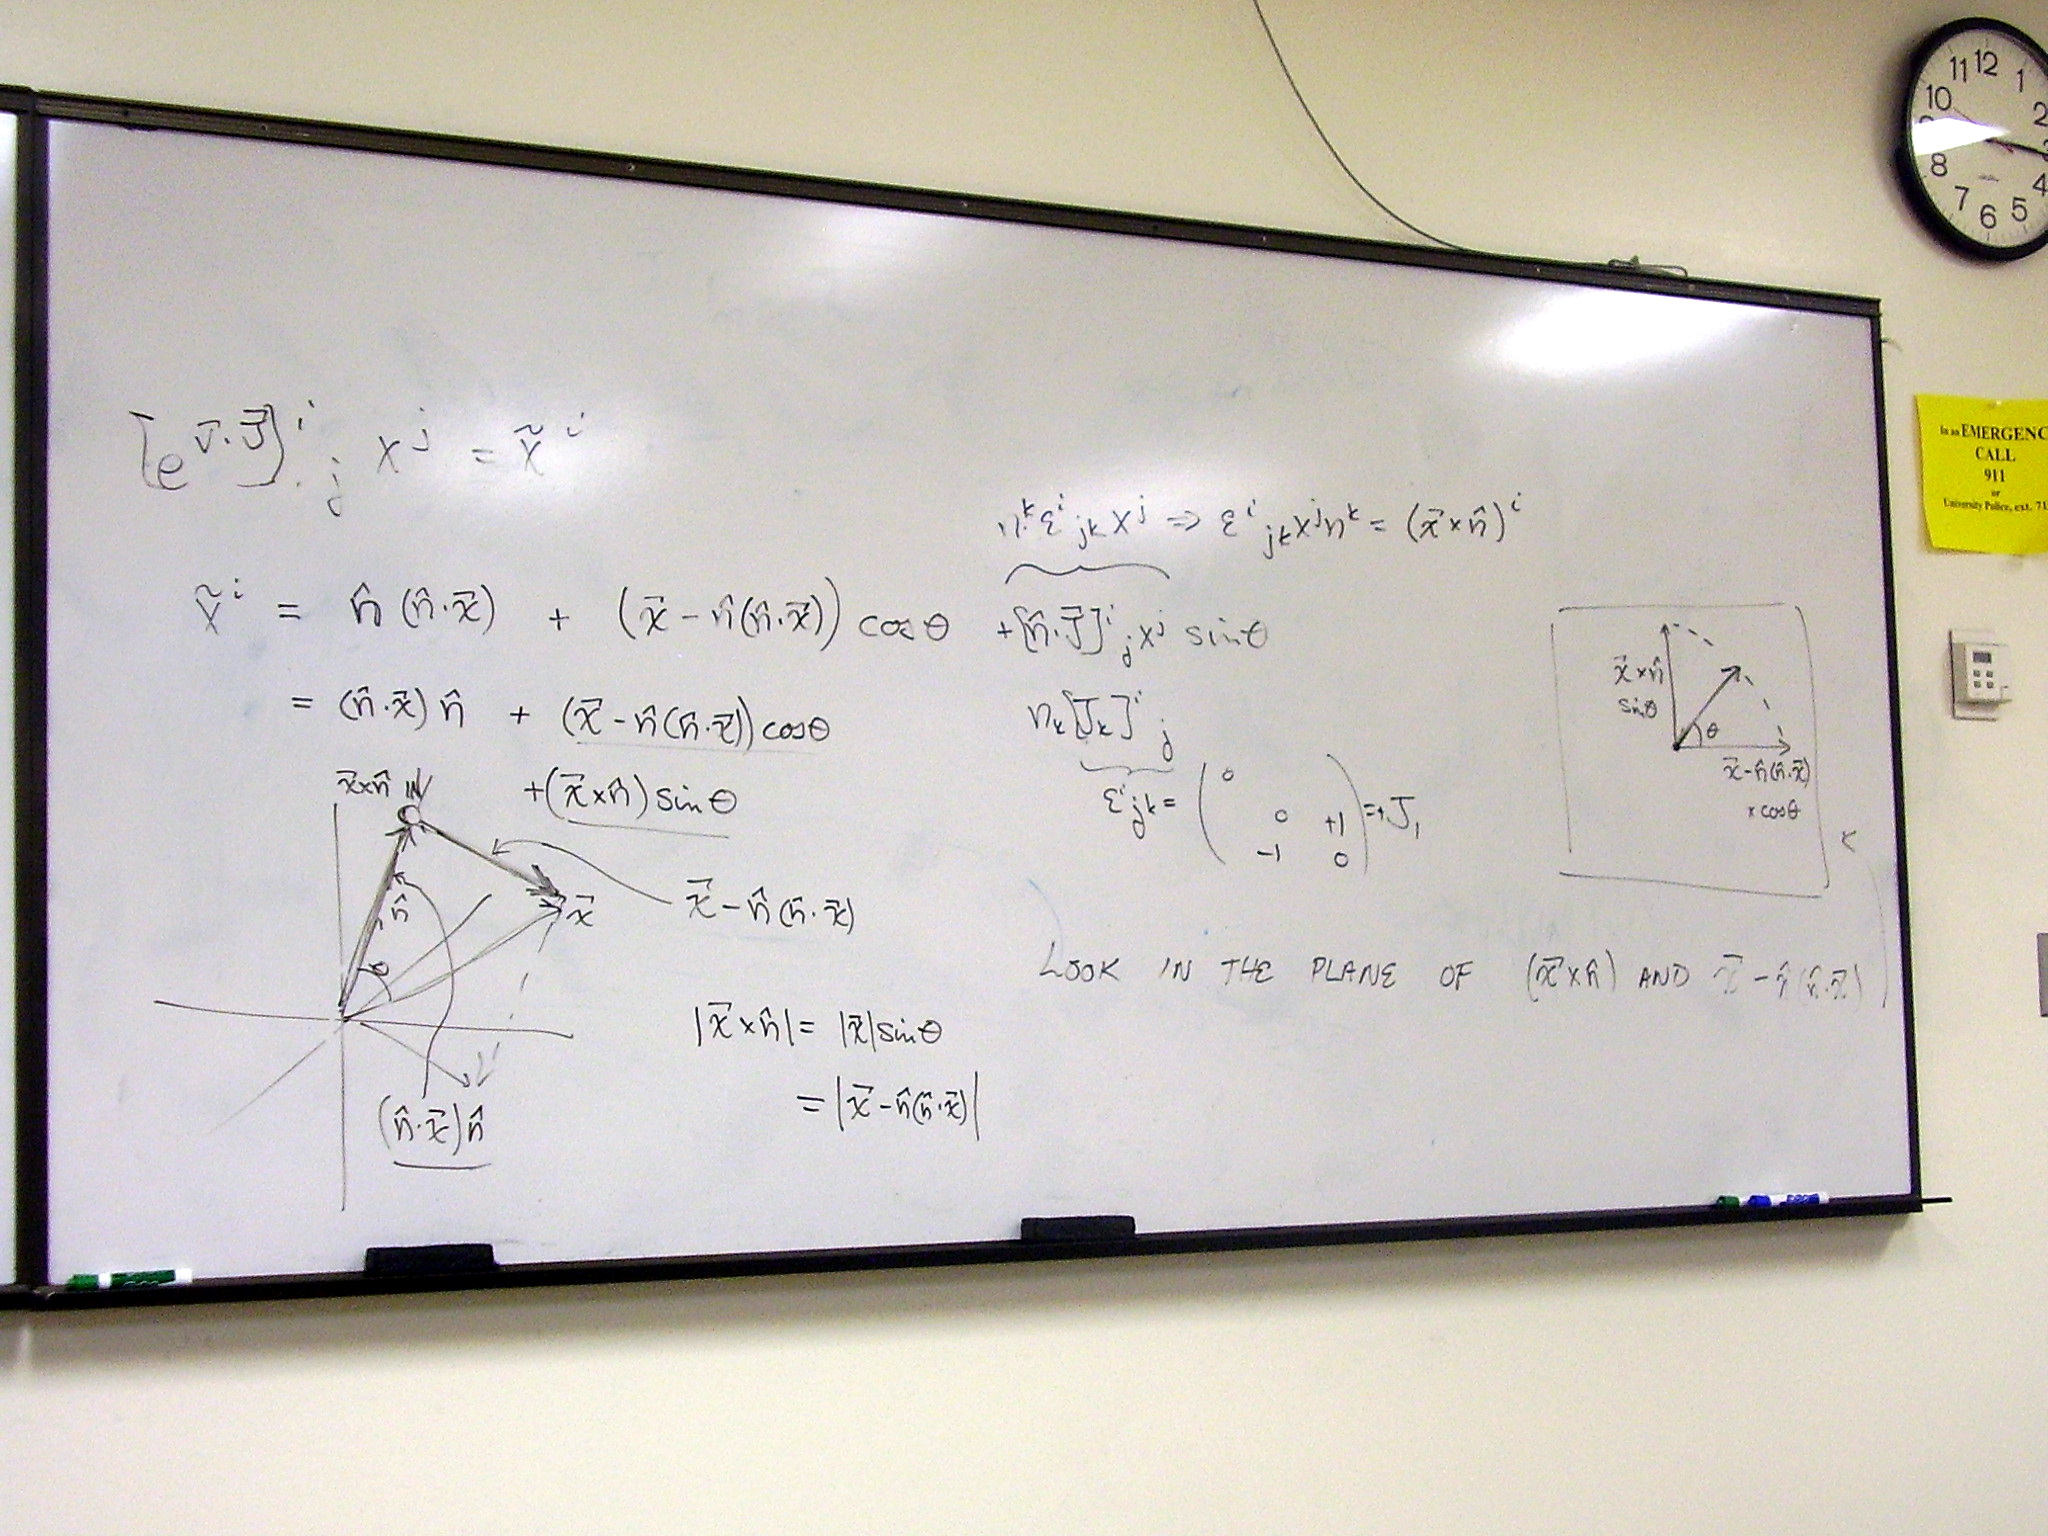 [e^{v⃗·J⃗}]^i_j x^j = x̃^i
n^k ε^i_{jk} x^j ⇒ ε^i_{jk} x^j n^k = (x⃗×n̂)^i
x̃^i = n̂(n̂·x⃗) + (x⃗-n̂(n̂·x⃗)) cosθ + [n̂·J⃗]^i_j x^j sinθ
= (n̂·x⃗)n̂ + (x⃗-n̂(n̂·x⃗)) cosθ
+(x⃗×n̂) sinθ
n_k[J_k]^i_j
ε^i_{jk} = ( 0
0 +1
-1 0 ) = +J_1
x⃗×n̂ IN
n̂
θ
x⃗
x⃗-n̂(n̂·x⃗)
(n̂·x⃗)n̂
|x⃗×n̂| = |x⃗|sinθ
= |x⃗-n̂(n̂·x⃗)|
x⃗×n̂
sinθ
θ
x⃗-n̂(n̂·x⃗)
×cosθ
LOOK IN THE PLANE OF (x⃗×n̂) AND x⃗-n̂(n̂·x⃗)
11 12 1
10 2
8 4
7 6 5
In an EMERGENC
CALL
911
or
University Police, ext. 71